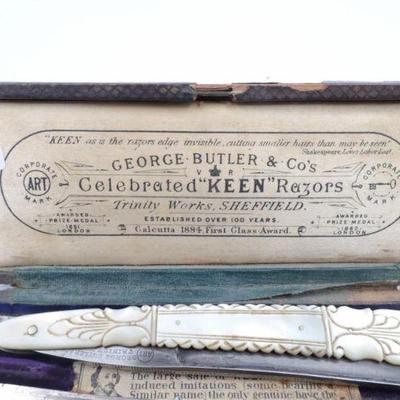 "KEEN as is the razors edge invisible, cutting smaller hairs than may be seen"
Shakespeare, Loves Labor Lost
GEORGE BUTLER & Co's
V R
Celebrated "KEEN" Razors
Trinity Works, SHEFFIELD.
ESTABLISHED OVER 100 YEARS.
Calcutta 1884, First Class Award.
CORPORATE
ART
MARK
AWARDED
PRIZE-MEDAL
1851
LONDON
CORPORATE
MARK
AWARDED
PRIZE-MEDAL
1862
LONDON
The large sale of
induced imitations (some bearing a
Similar name) the only genuine have the